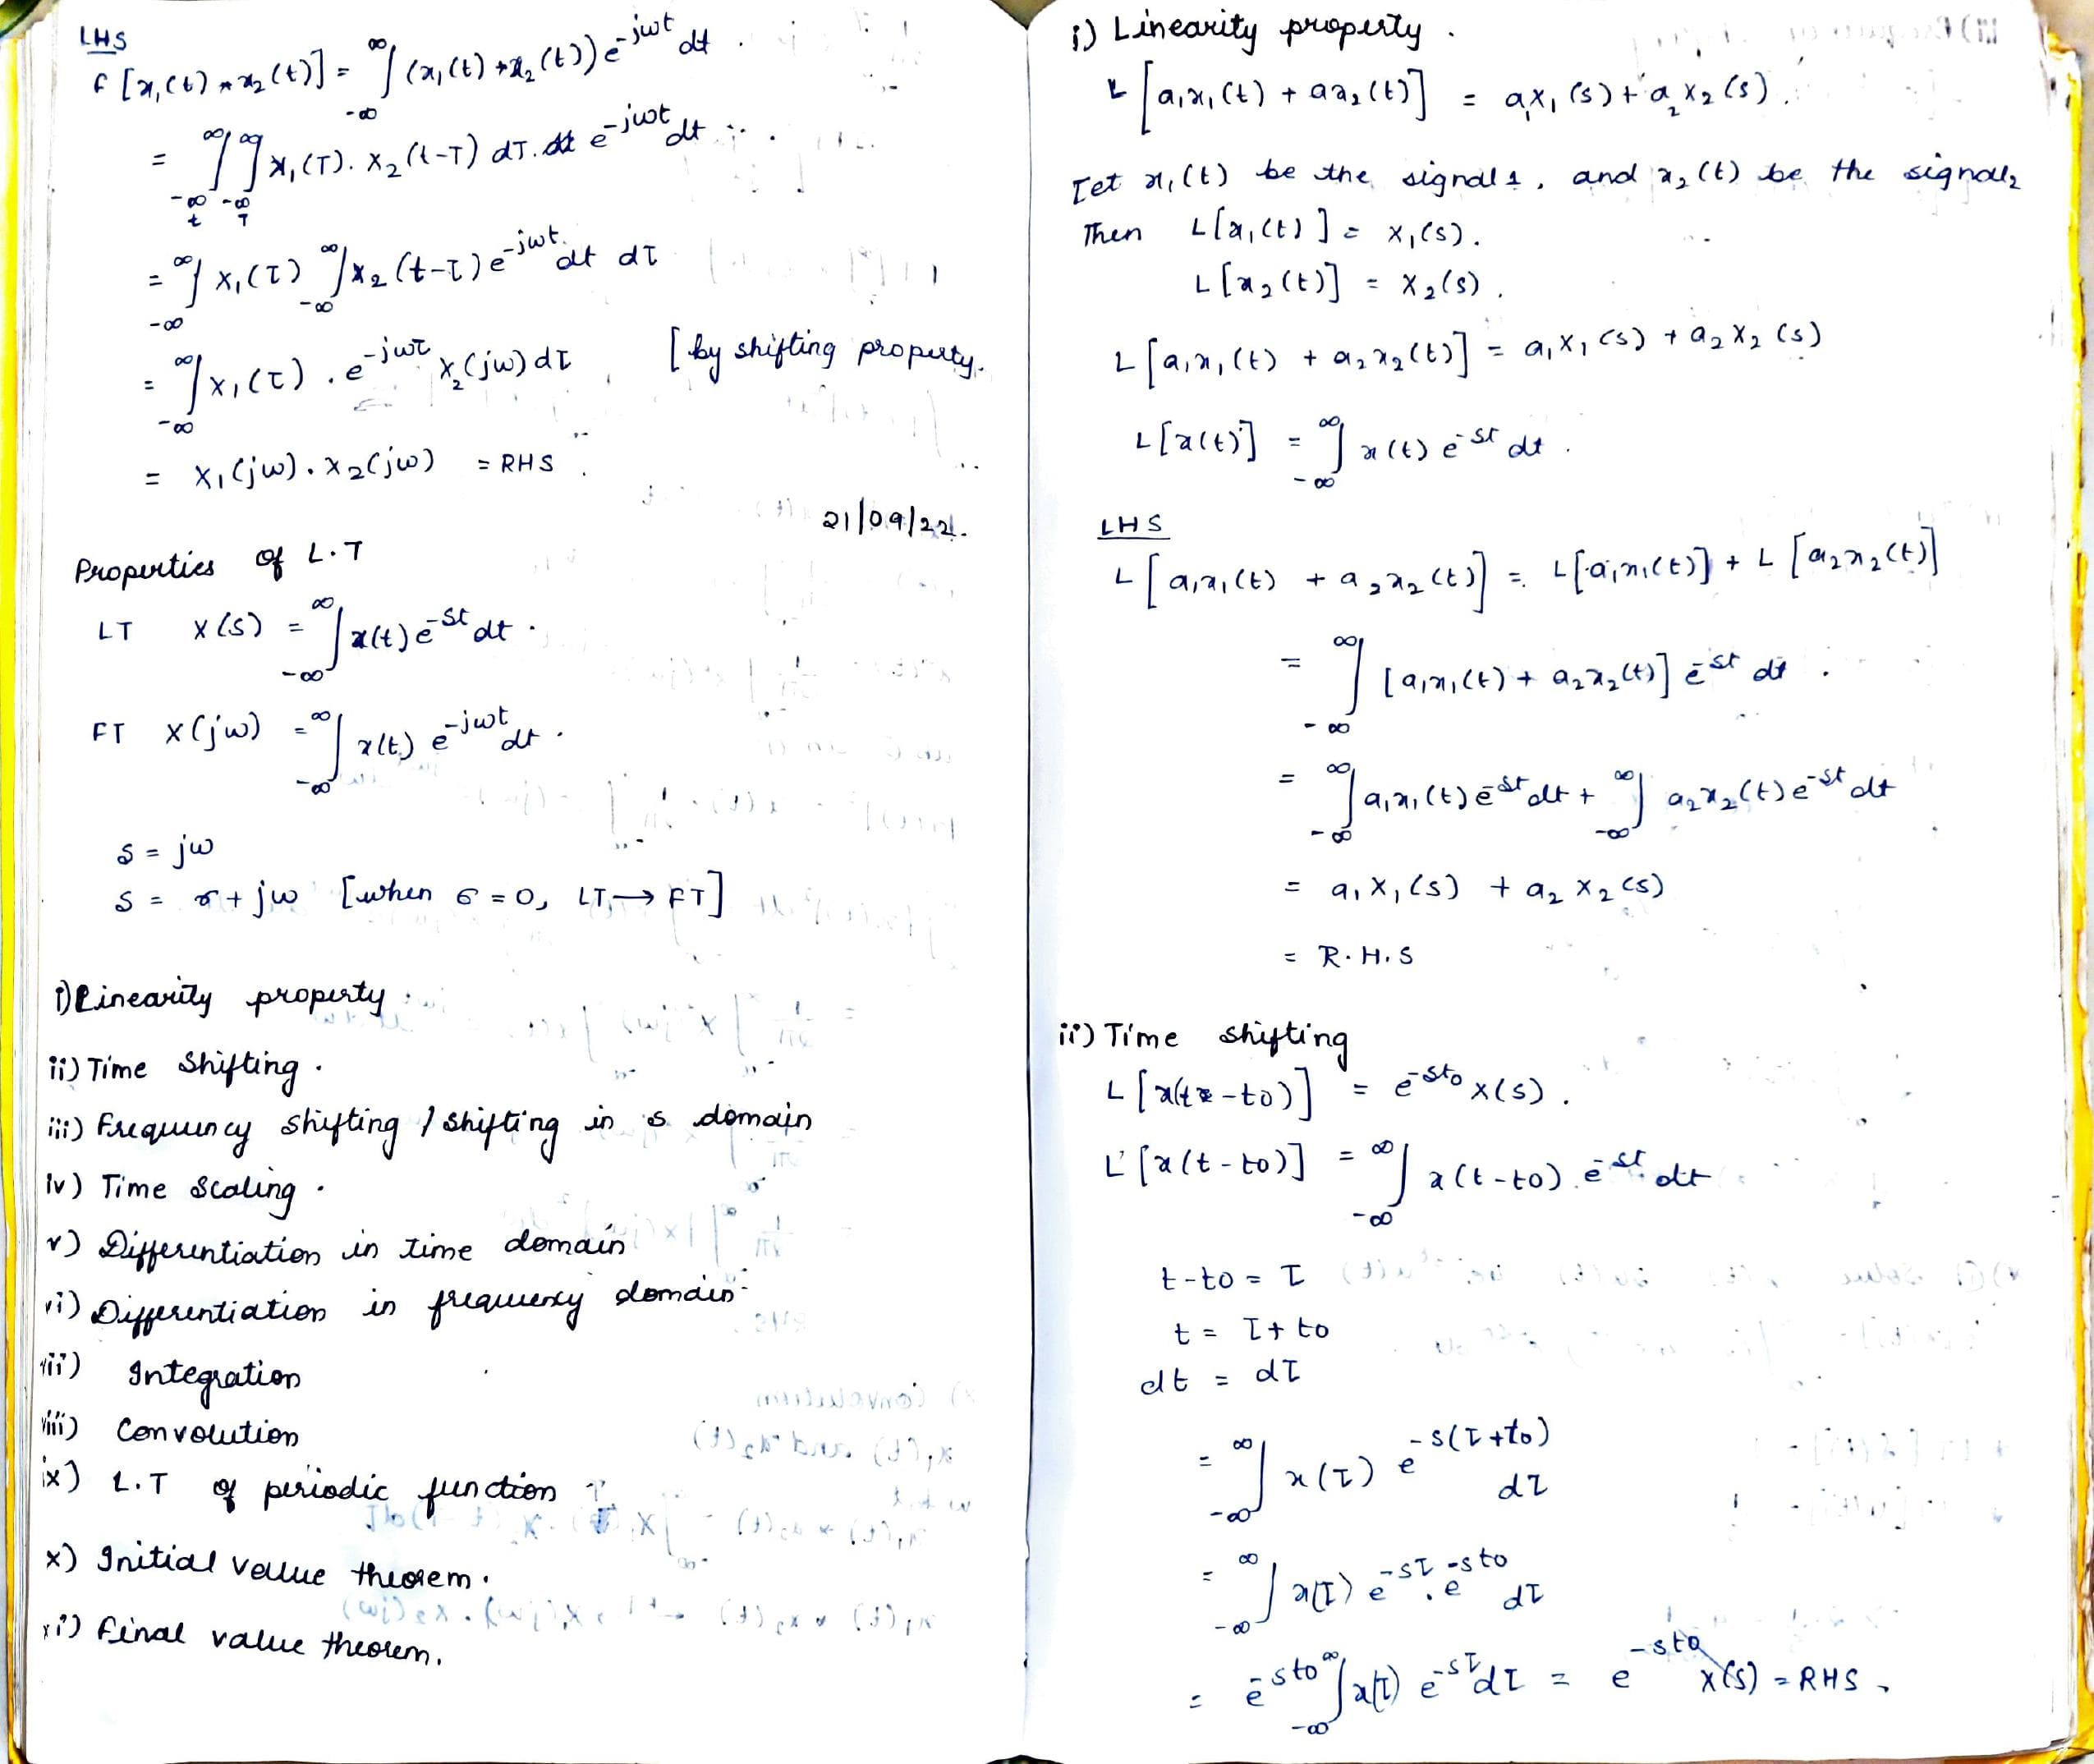 LHS
F[x₁(t) * x₂(t)] = ∞∫-∞ (x₁(t) * x₂(t)) e^-jωt dt .
= ∞∫-∞ ∞∫-∞ x₁(τ). x₂(t-τ) dτ. e^-jωt dt
t τ
= ∞∫-∞ x₁(τ) ∞∫-∞ x₂(t-τ) e^-jωt. dt dτ
= ∞∫-∞ x₁(τ) . e^-jωτ x₂(jω) dτ [by shifting property.
= x₁(jω). x₂(jω) = RHS .
21/09/22.
Properties of L.T
LT X(s) = ∞∫-∞ x(t) e^-st dt .
FT X(jω) = ∞∫-∞ x(t) e^-jωt dt .
s = jω
s = σ + jω [when σ = 0, LT → FT]
i) Linearity property
ii) Time Shifting .
iii) Frequency shifting / shifting in s domain
iv) Time Scaling .
v) Differentiation in time domain
vi) Differentiation in frequency domain
vii) Integration
viii) Convolution
ix) L.T of periodic function
x) Initial value theorem.
xi) Final value theorem.
i) Linearity property .
L[a₁x₁(t) + ax₂(t)] = a₁x₁(s) + a₂x₂(s).
Let x₁(t) be the signal 1, and x₂(t) be the signal₂
Then L[x₁(t)] = x₁(s).
L[x₂(t)] = x₂(s).
L[a₁x₁(t) + a₂x₂(t)] = a₁x₁(s) + a₂x₂(s)
L[x(t)] = ∞∫-∞ x(t) e^-st dt .
LHS
L[a₁x₁(t) + a₂x₂(t)] = L[a₁x₁(t)] + L[a₂x₂(t)]
= ∞∫-∞ [a₁x₁(t) + a₂x₂(t)] e^-st dt .
= ∞∫-∞ a₁x₁(t) e^-st dt + ∞∫-∞ a₂x₂(t) e^-st dt
= a₁x₁(s) + a₂x₂(s)
= R.H.S
ii) Time shifting
L[x(t-to)] = e^-sto x(s) .
L[x(t-to)] = ∞∫-∞ x(t-to) e^-st dt
t-to = τ
t = τ + to
dt = dτ
= ∞∫-∞ x(τ) e^-s(τ+to) dτ
= ∞∫-∞ x(τ) e^-sτ . e^-sto dτ
= e^-sto ∞∫-∞ x(τ) e^-sτ dτ = e^-sto x(s) = RHS .